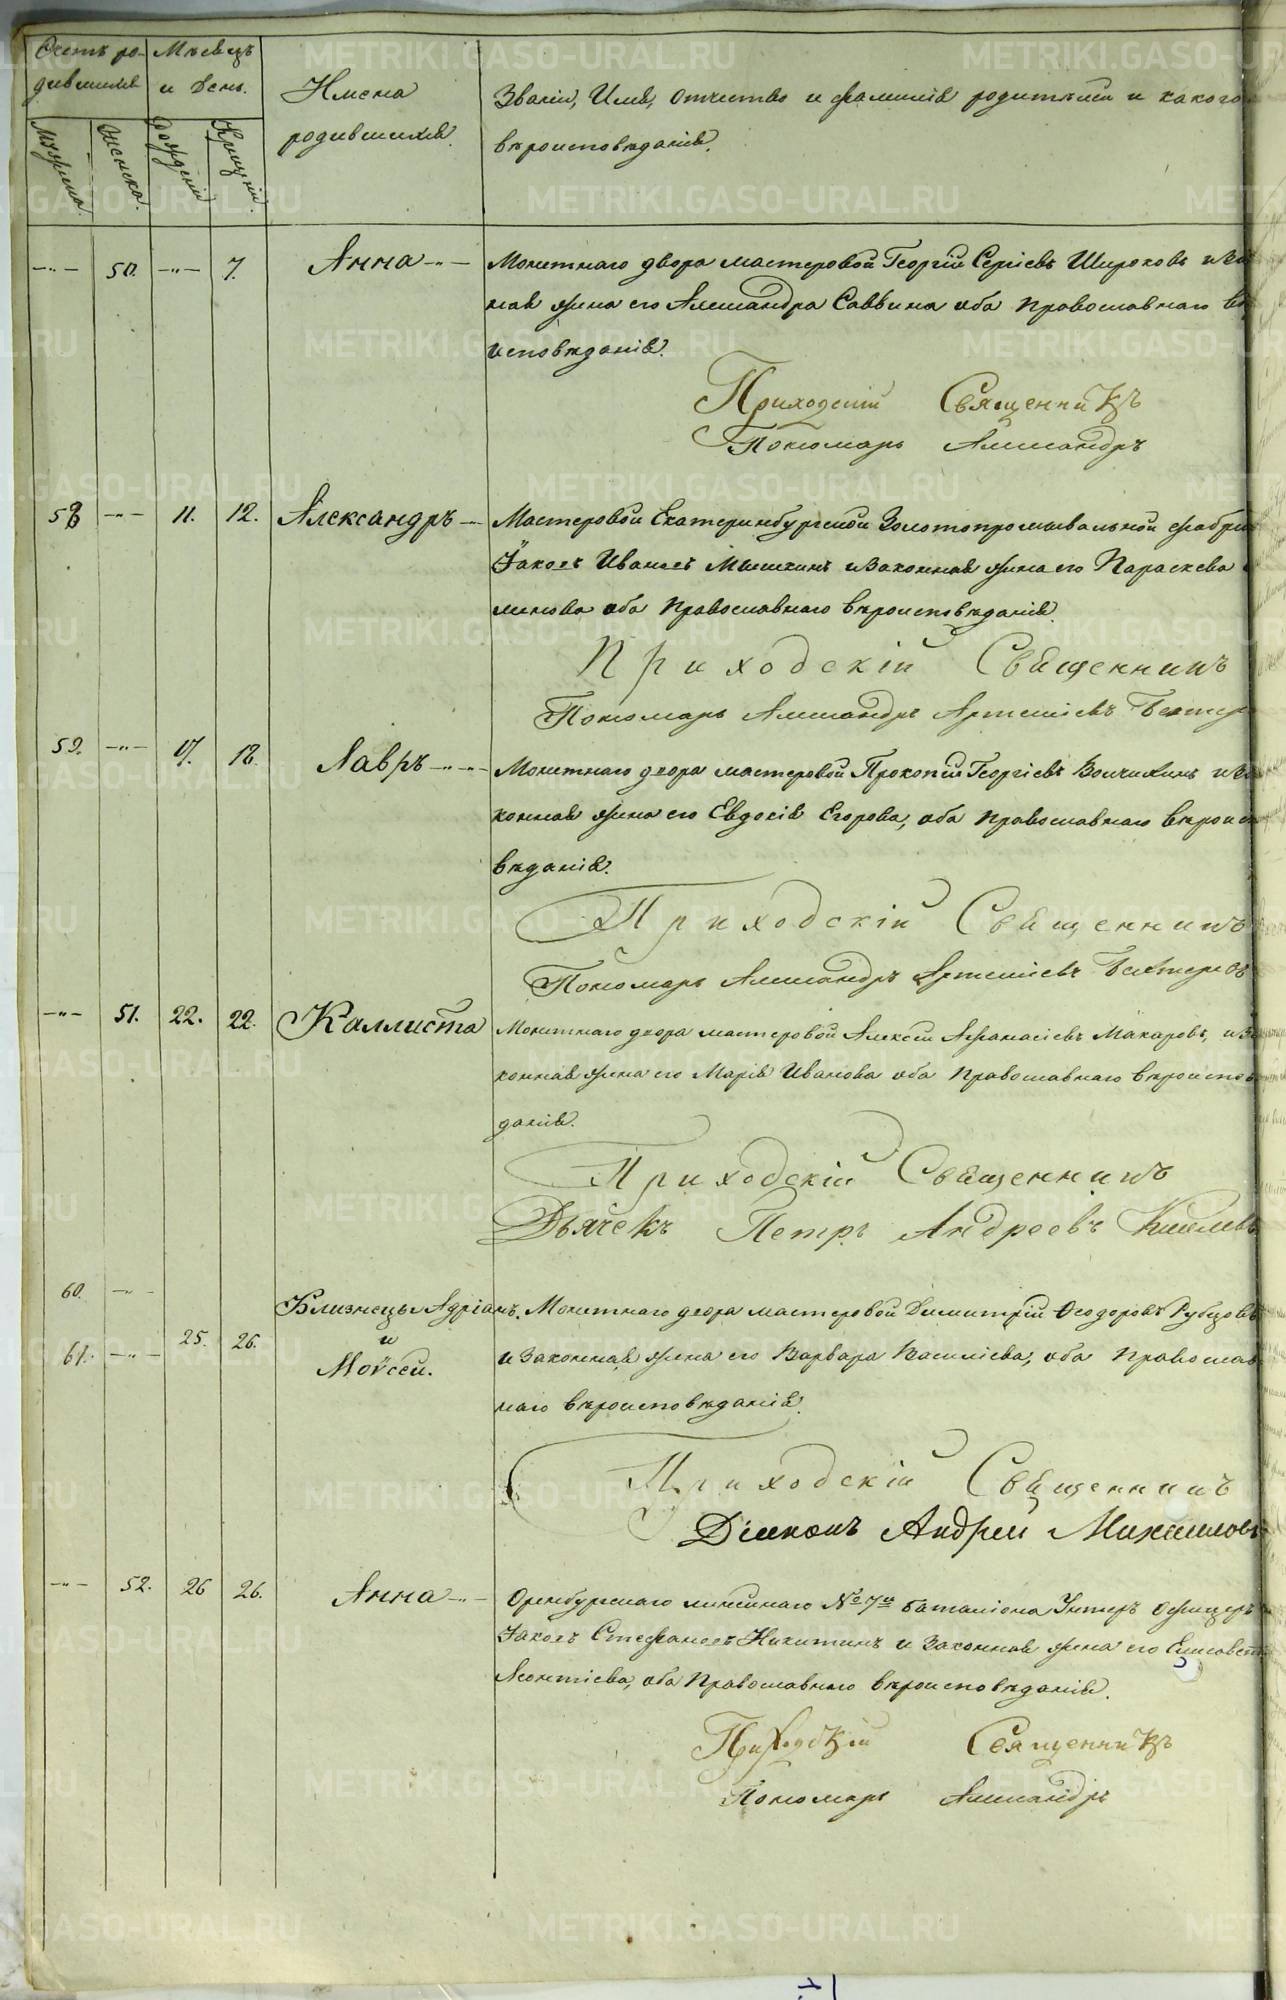 Счетъ ро-
дившихся
Мѣсяцъ
и День.
Имена
родившихся.
Званіе, Имя, Отчество и фамилія родителей и какого
вѣроисповѣданія.
Мужеска.
Женска.
Рожденія
Крещенія.
—"— 50. —"— 7. Анна —"— Монетнаго двора мастеровой Георгій Сергіевъ Широковъ и за
ная жена его Александра Саввина оба православнаго вѣ
исповѣданія.
Приходскій Священникъ
Пономарь Александръ
58 —"— 11. 12. Александръ — Мастеровой Екатеринбургской Золотопромывальной фабри
Іаковъ Ивановъ Мышкинъ и Законная жена его Параскева
оба Православнаго вѣроисповѣданія.
Приходскій Священникъ
Пономарь Александръ Артеміевъ
59. —"— 17. 18. Лавръ —"— Монетнаго двора мастеровой Прокопій Георгіевъ и За
конная жена его Евдокія Егорова, оба православнаго вѣроиспо
вѣданія.
Приходскій Священникъ
Пономарь Александръ Артеміевъ
—"— 51. 22. 22. Каллиста Монетнаго двора мастеровой Алексѣй Афанасіевъ Макаровъ, и За
конная жена его Марія Иванова оба Православнаго вѣроиспов
данія.
Приходскій Священникъ
Дьячекъ Петръ Андреевъ
60. —"—
Близнецы Адріанъ. Монетнаго двора мастеровой Димитрій Феодоровъ Рубцовъ
и
61. —"— 25. 26. и Законная жена его Варвара Василіева, оба Православ
Моѵсей.
наго вѣроисповѣданія.
Приходскій Священникъ
Діаконъ Андрей Михаиловъ
—"— 52. 26 26. Анна —"— Оренбургскаго линейнаго № 7й баталіона Унтеръ Офицеръ
Іаковъ Стефановъ Никитинъ и Законная жена его Елисавета
Леонтіева, оба Православнаго вѣроисповѣданія.
Приходскій Священникъ
Пономарь Александръ
METRIKI.GASO-URAL.RU